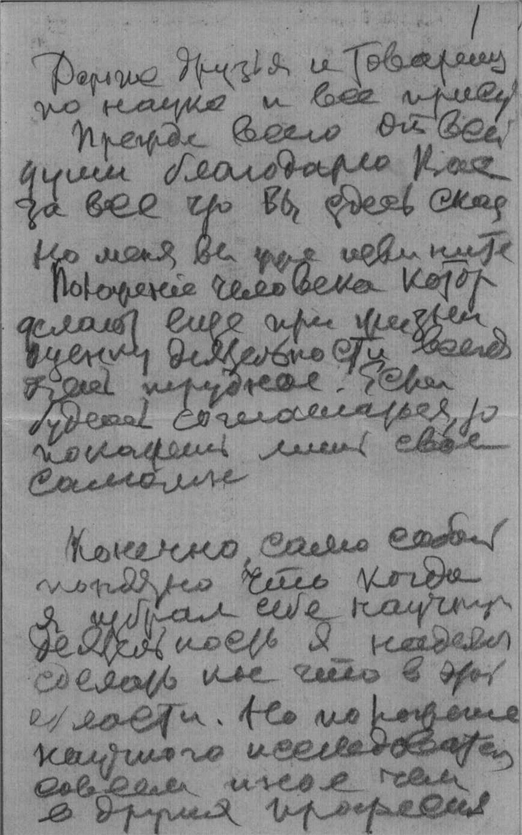 1
друзья и Товарищи
по науке и все прису
Прежде всего от всей
души благодарю Вас
за все что Вы здесь сказ
Но меня вы уже извините
Положение человека котор
делают еще при жизни
оценку деятельности всегда
трудное. Если
будешь соглашаться, то
покажешь лишь свое
самомн
Конечно, само собой
понятно что когда
я избрал себе научную
деятельность я надеялся
сделать кое что в этой
области. Но положение
научного исследователя
совсем иное чем
в других профессия